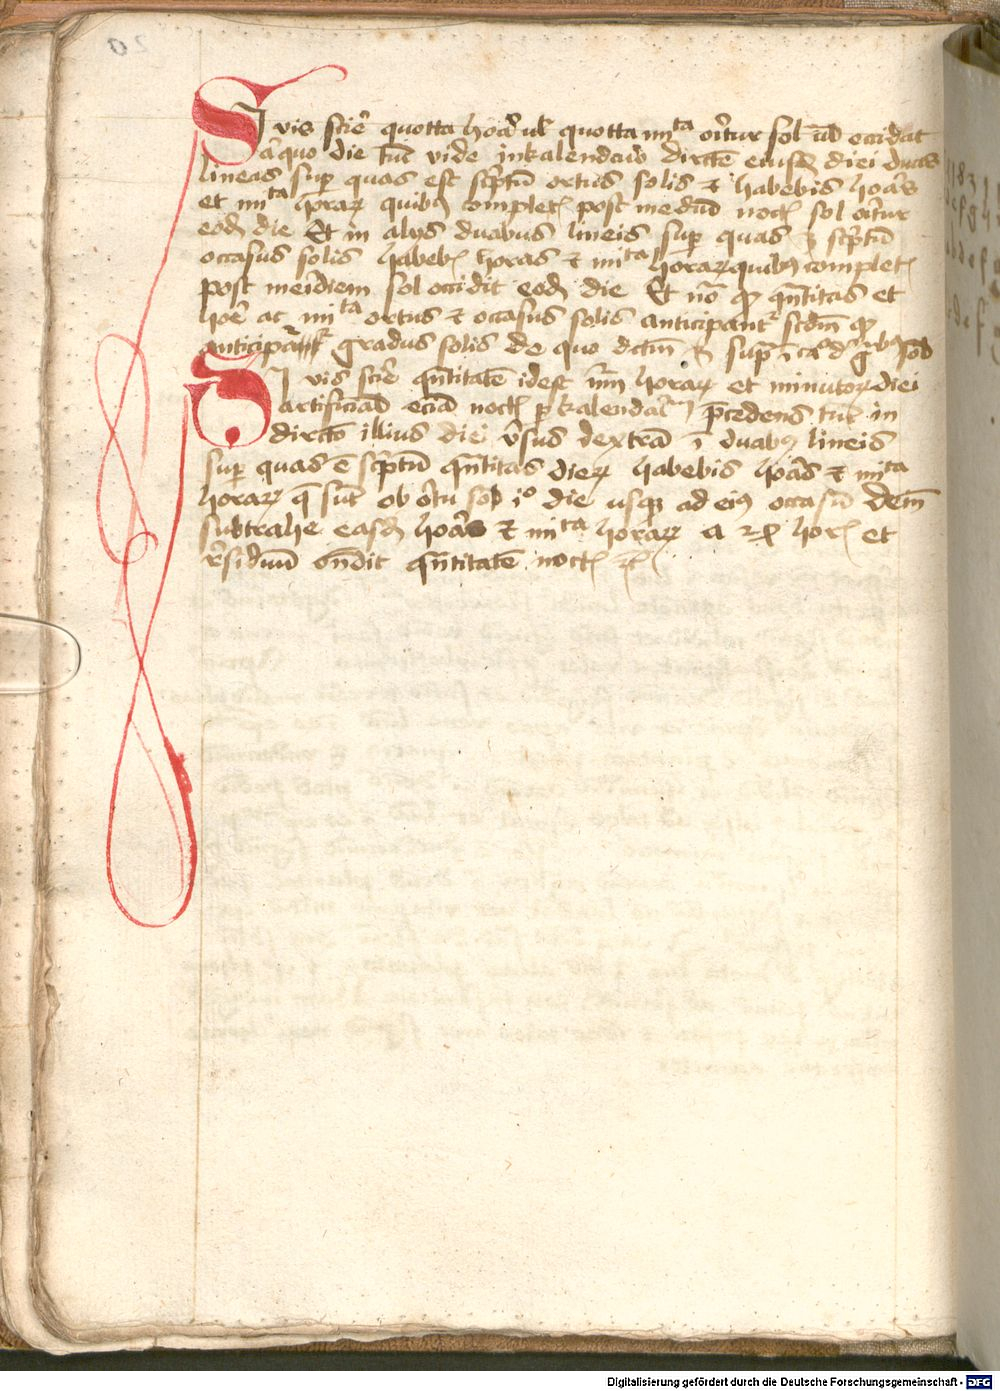 SI vis scire quotta hora ul quotta mita oritur sol ul occidat
aliquo die tunc vide in kalendario directe eiusdem diei duas
lineas super quas est scriptum ortus solis et habebis horas
et mita horarum quibus completis post mediam noctis sol oritur
eodem die Et in aliis duabus lineis super quas est scriptum
occasus solis habebis horas et mita horarum quibus completis
post meridiem sol occidit eodem die Et non quod quantitas et
hore ac mita ortus et occasus solis anticipantur secundum quod
anticipantur gradus solis de quo dictum est supra in
SI vis scire quantitatem idest numerum horarum et minutorum diei
artificialis eciam noctis per kalendarium precedens tunc in
directo illius diei versus dextram in duabus lineis
super quas est scriptum quantitas dierum habebis horas et mita
horarum que sunt ab ortu solis die usque ad eius occasum Demum
subtrahe easdem horas et mita horarum a 24 horis et
residuum ostendit quantitatem noctis
Digitalisierung gefördert durch die Deutsche Forschungsgemeinschaft - DFG